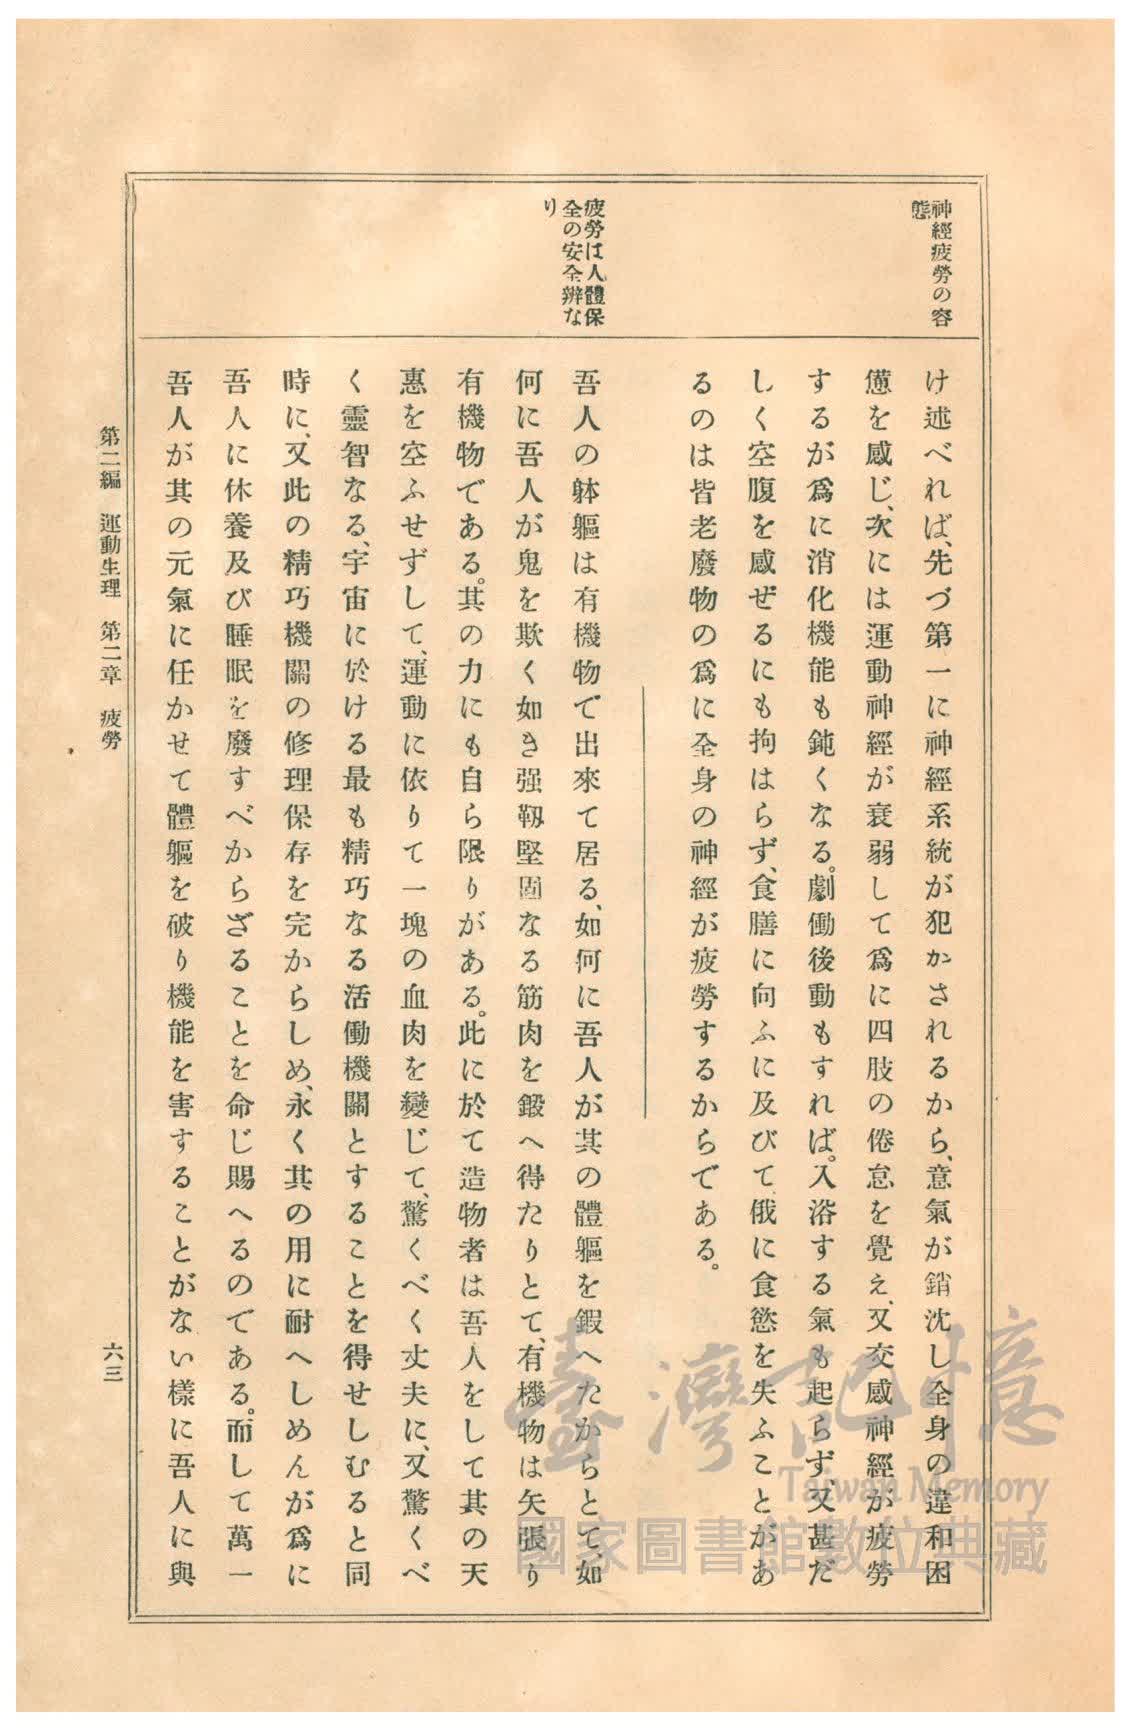 神經疲勞の容
態
疲勞は人體保
全の安全辨な
り
け述べれば、先づ第一に神經系統が犯かされるから、意氣が銷沈し全身の違和困
憊を感じ、次には運動神經が衰弱して爲に四肢の倦怠を覺え、又交感神經が疲勞
するが爲に消化機能も鈍くなる。劇働後動もすれば。入浴する氣も起らず、又甚だ
しく空腹を感ぜるにも拘はらず、食膳に向ふに及びて俄に食慾を失ふことがあ
るのは皆老廢物の爲に全身の神經が疲勞するからである。
吾人の躰軀は有機物で出來て居る、如何に吾人が其の體軀を鍜へたからとて、如
何に吾人が鬼を欺く如き强靱堅固なる筋肉を鍛へ得たりとて、有機物は矢張り
有機物である。其の力にも自ら限りがある。此に於て造物者は吾人をして其の天
惠を空ふせずして、運動に依りて一塊の血肉を變じて、驚くべく丈夫に、又驚くべ
く靈智なる、宇宙に於ける最も精巧なる活働機關とすることを得せしむると同
時に、又此の精巧機關の修理保存を完からしめ、永く其の用に耐へしめんが爲に
吾人に休養及び睡眠を廢すべからざることを命じ賜へるのである。而して萬一
吾人が其の元氣に任かせて體軀を破り機能を害することがない樣に吾人に與
第二編　運動生理　第二章　疲勞
六三
臺灣記憶
Taiwan Memory
國家圖書館數位典藏